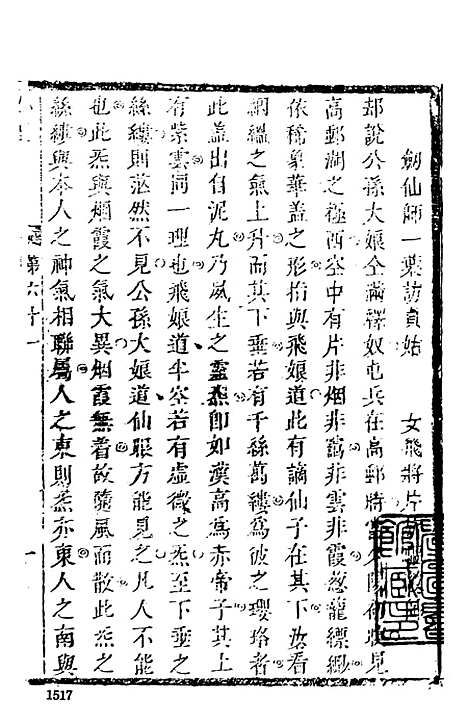 劍仙師一葉訪貞姑　女飛將片
却說公孫大娘仝滿釋奴屯兵在高郵將見
高郵湖之極西空中有片非烟非霧非雲非霞葱蘢縹緲
依稀象華葢之形指與飛娘道此有謫仙子在其下看
絪緼之氣上升而其下垂若有千絲萬縷為彼之瓔珞者
此葢出自泥丸乃夙生之靈炁卽如漢高為赤帝子其上
有紫雲同一理也飛娘道半空若有虛微之炁至下垂之
絲縷則茫然不見公孫大娘道仙眼方能見之凡人不能
也此炁與烟霞之氣大異烟霞無着故隨風而散此炁之
絲縷與本人之神氣相聯屬人之東則炁亦東人之南與
第六十一
一
1517